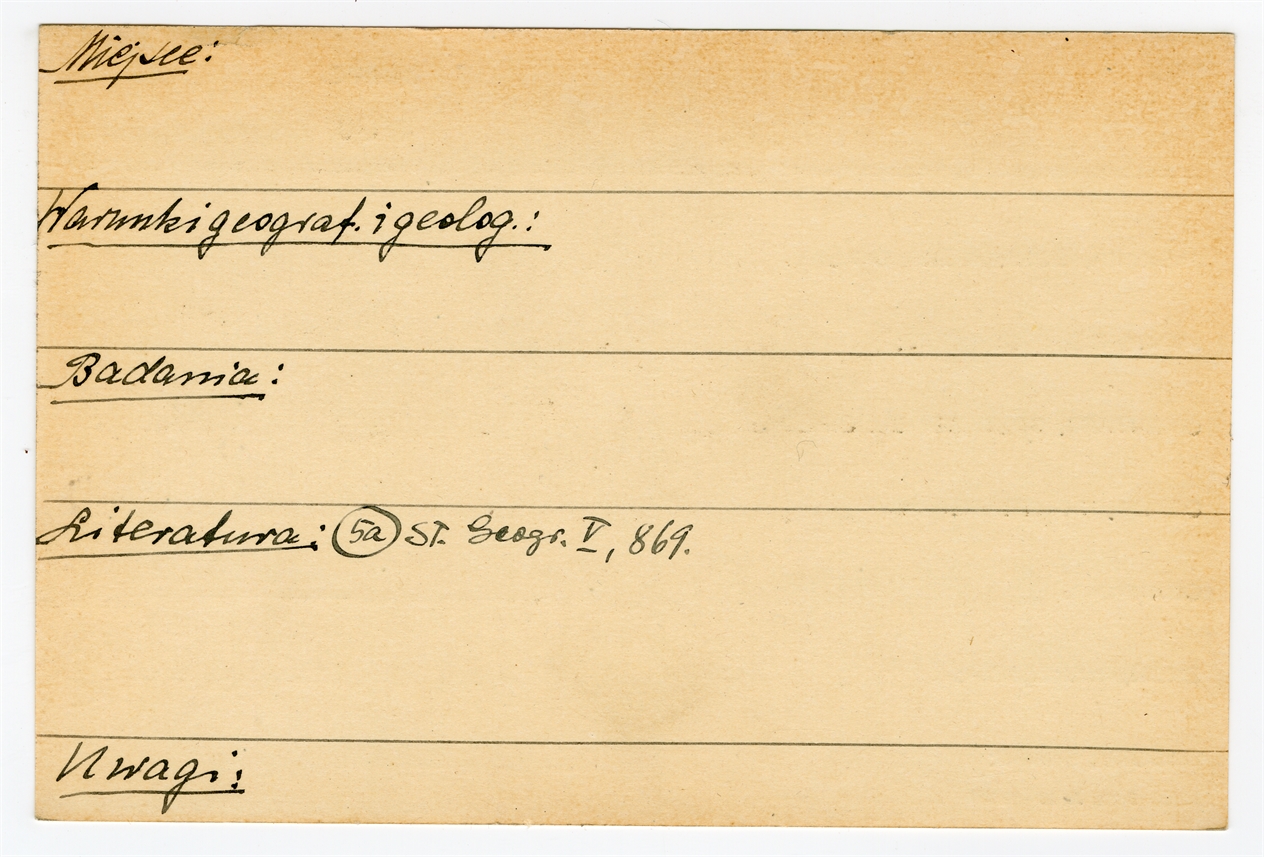 Miejsce:
Warunki geograf. i geolog.:
Badania:
Literatura: 5a Sł. Geogr. V, 869.
Uwagi: